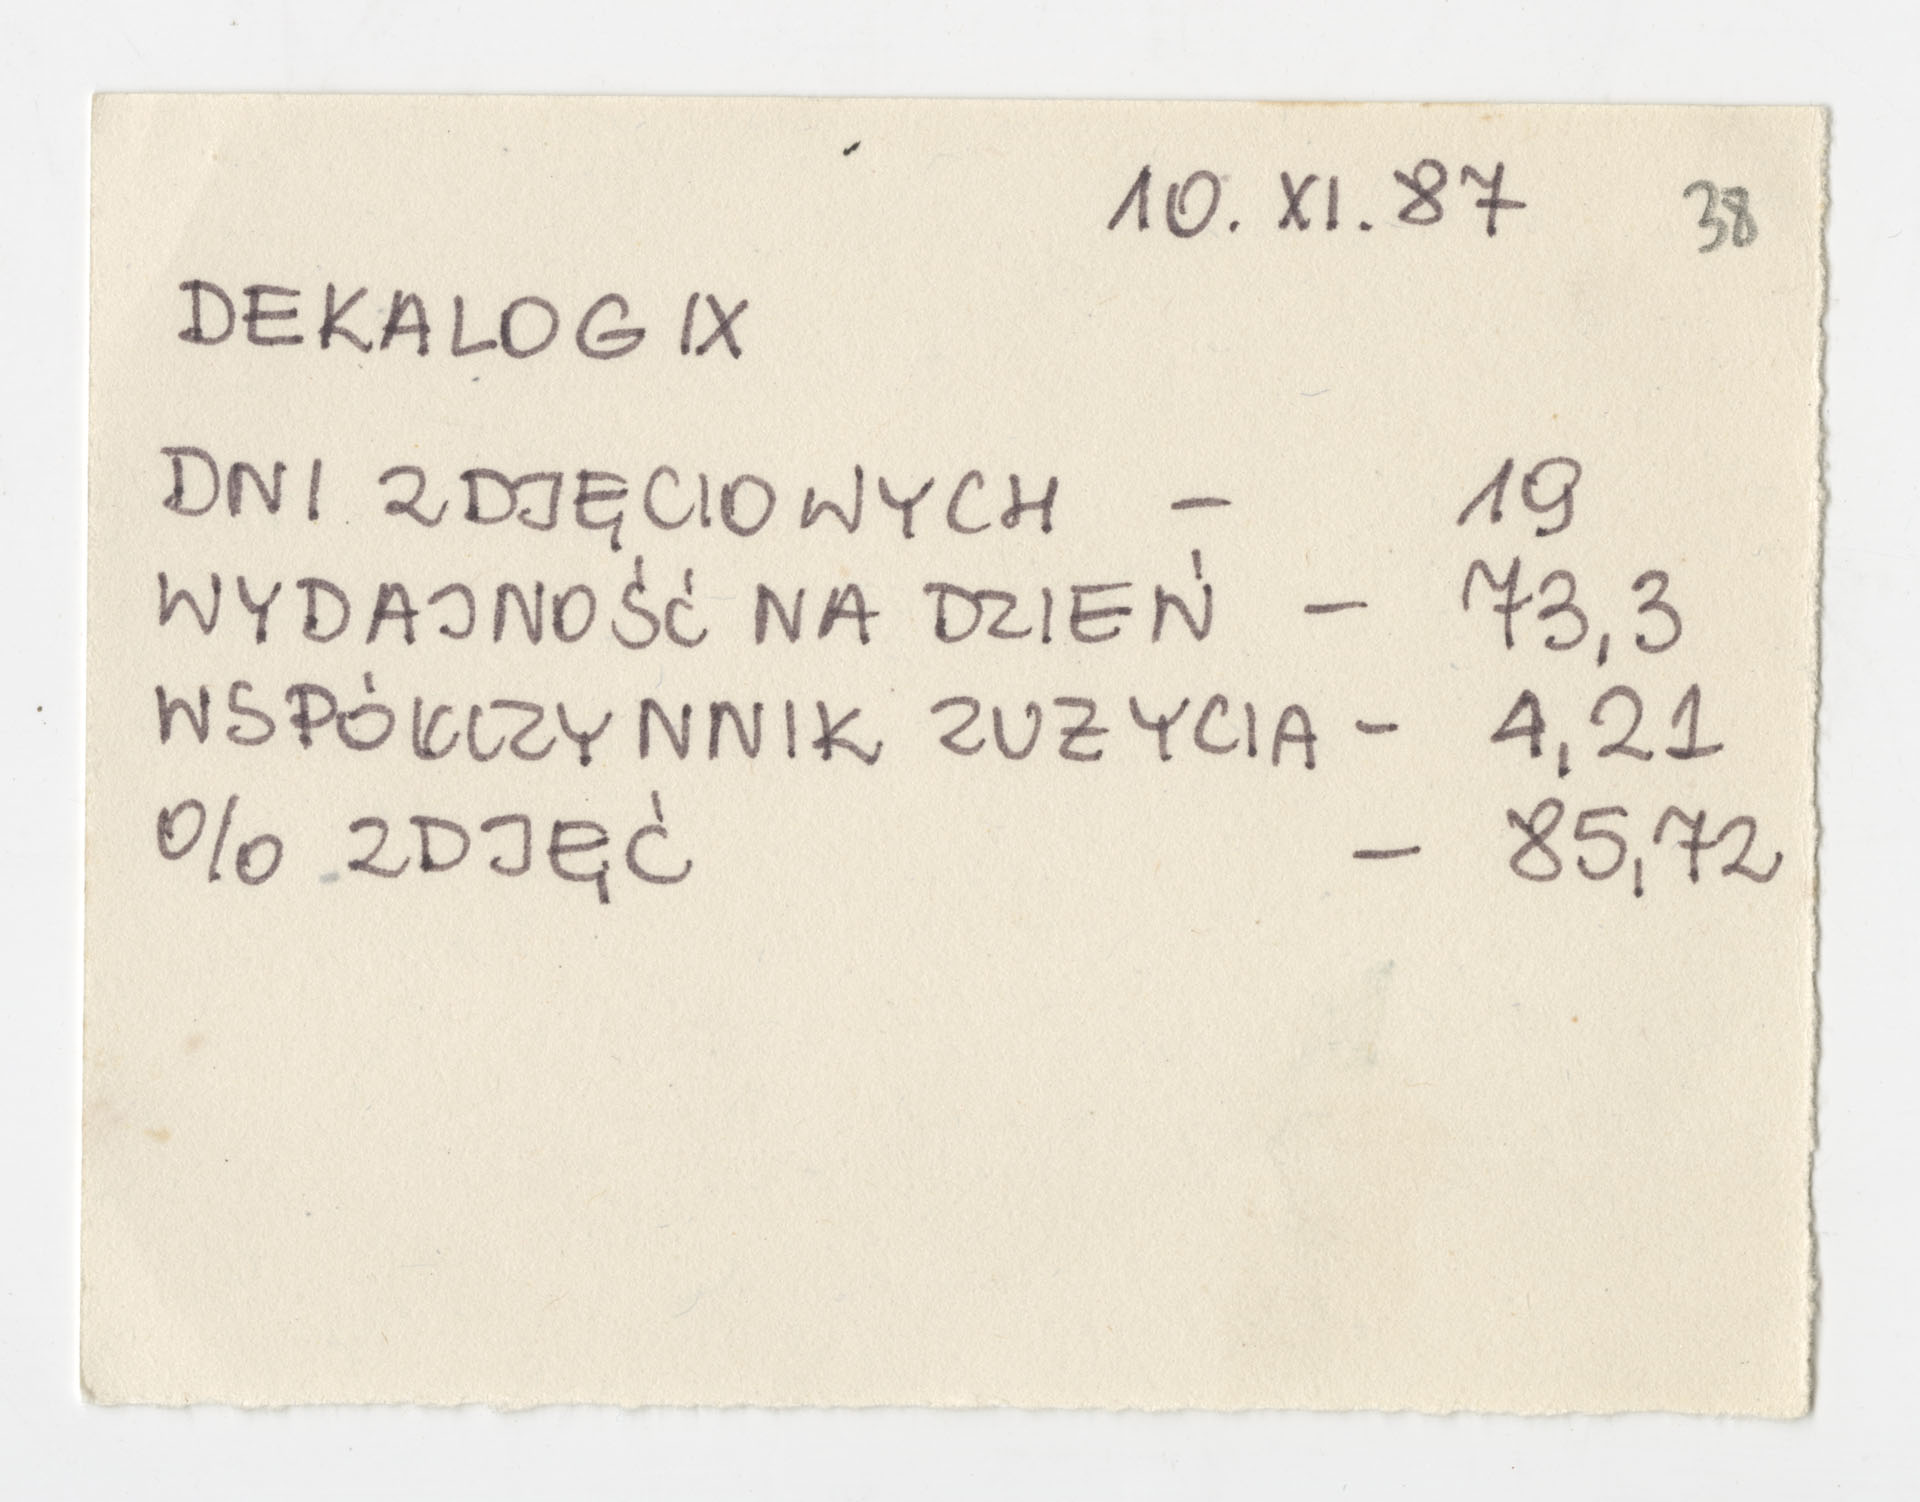 10. XI. 87 38
DEKALOG IX
DNI ZDJĘCIOWYCH – 19
WYDAJNOŚĆ NA DZIEŃ – 73,3
WSPÓŁCZYNNIK ZUŻYCIA – 4,21
% ZDJĘĆ – 85,72